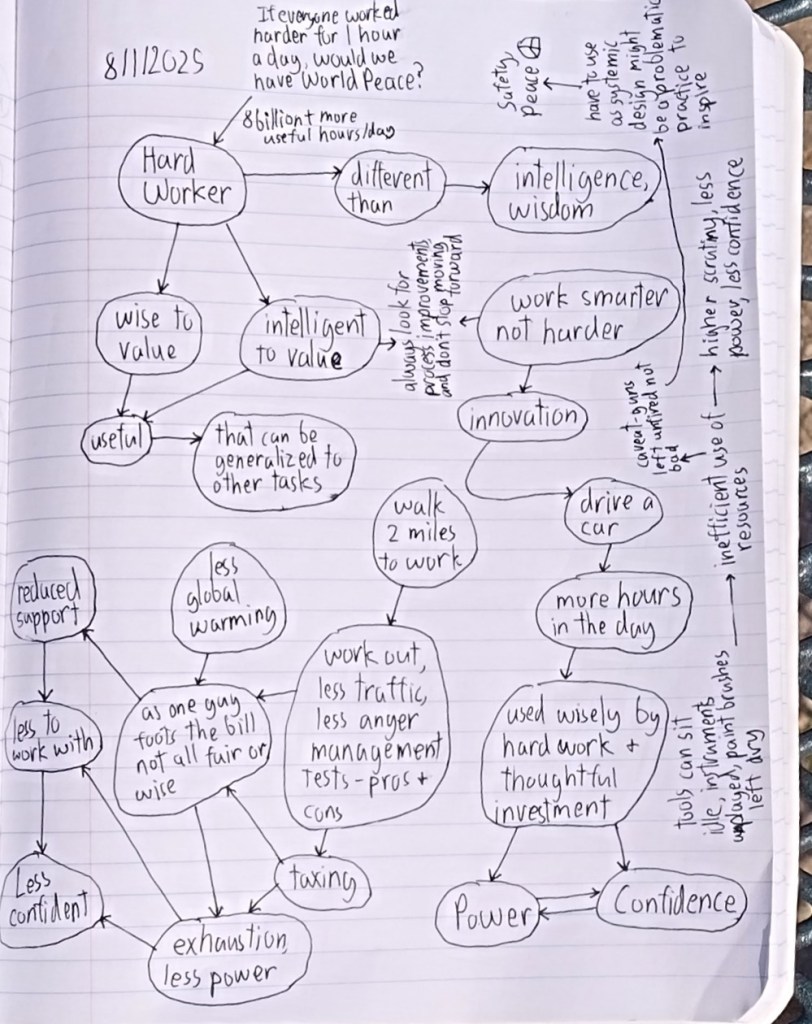 8/1/2025
If everyone worked
harder for 1 hour
a day, would we
have World Peace?
8 billion + more
useful hours/day
Safety,
peace
have to use
as systemic
design might
be a problematic
practice to
inspire
Hard
Worker
different
than
intelligence,
wisdom
wise to
value
intelligent
to value
always look for
process improvements,
and don't stop moving
forward
work smarter
not harder
innovation
useful
that can be
generalized to
other tasks
caveat-guns
left unfired not
bad
higher scrutiny, less
power, less confidence
inefficient use of
resources
tools can sit
idle, instruments
unplayed, paint brushes
left dry
walk
2 miles
to work
drive a
car
more hours
in the day
used wisely by
hard work +
thoughtful
investment
Power
Confidence
reduced
support
less
global
warming
less to
work with
as one guy
foots the bill
not all fair or
wise
work out,
less traffic,
less anger
management
tests - pros +
cons
Less
confident
taxing
exhaustion,
less power